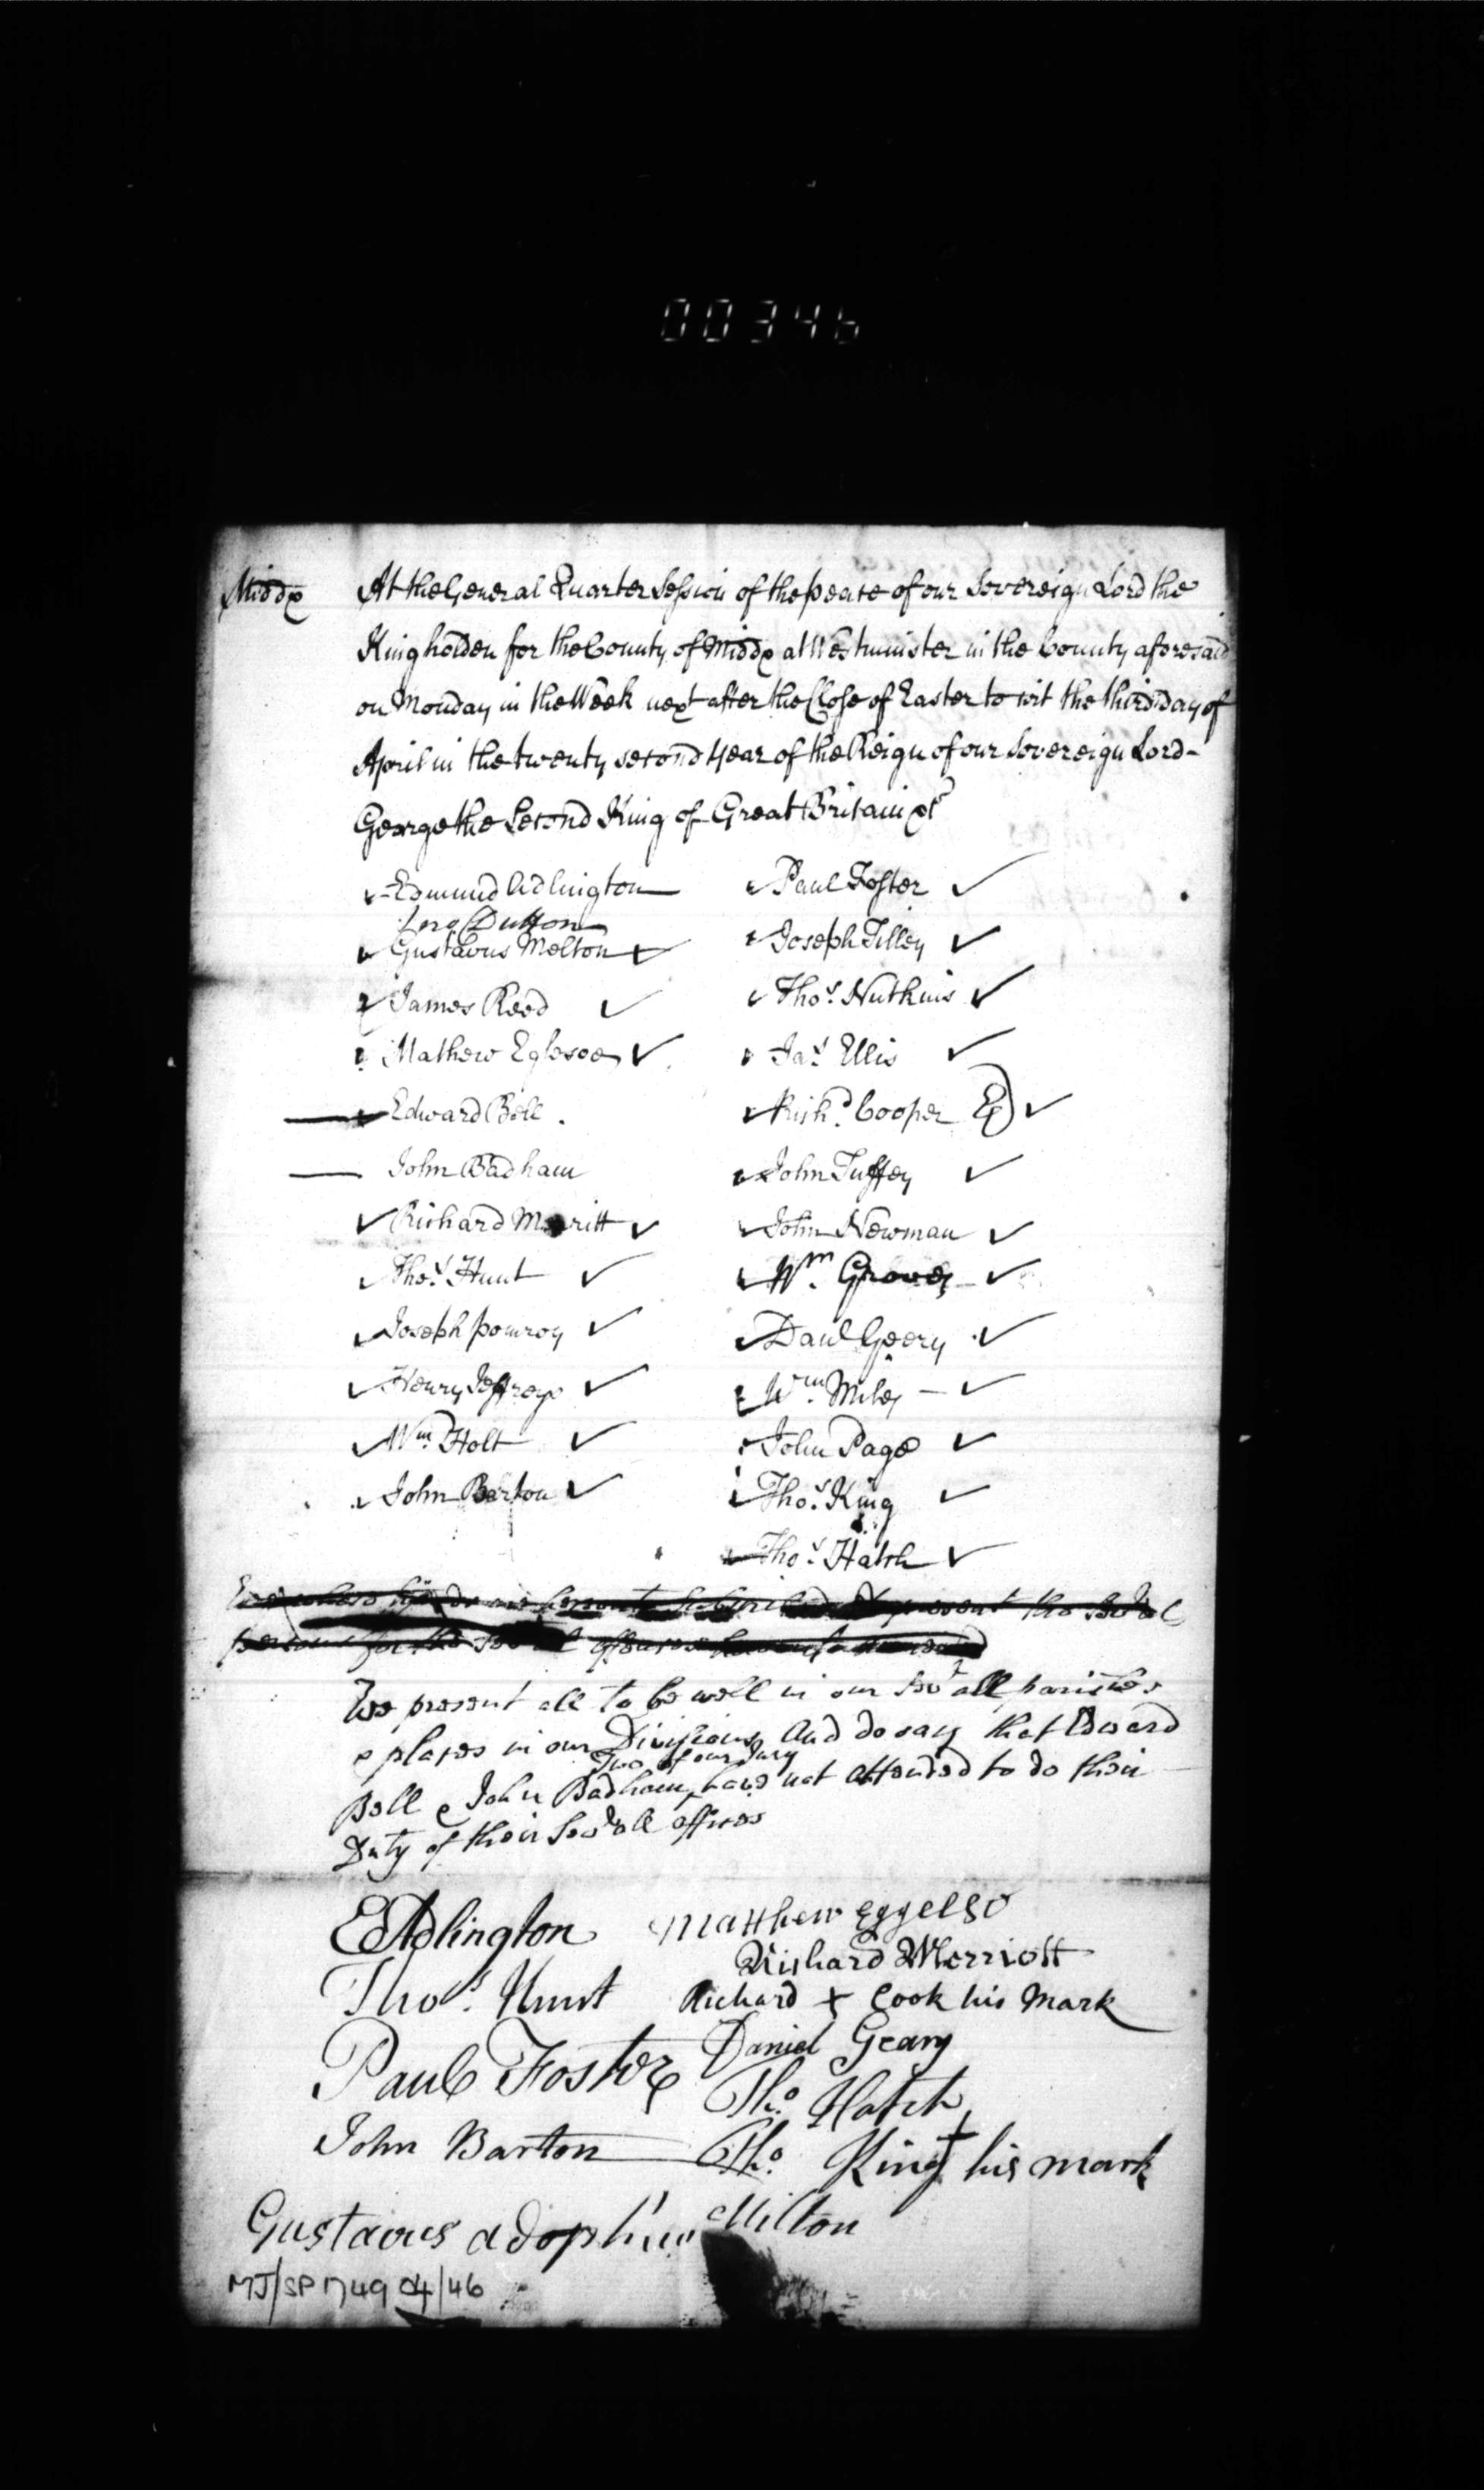 00346
Middx At the General Quarter Session of the peace of our Sovereign Lord the
King holden for the County of Middx at Westminster in the County aforesaid
on Monday in the Week next after the Close of Easter to wit the third day of
April in the twenty second Year of the Reign of our Sovereign Lord
George the Second King of Great Britain &c
Edmund Adlington
Dutton
Gustavus Melton
James Reed
Mathew Eglesoe
Edward Bell
John Badham
Richard Merritt
Thos. Hunt
Joseph pomroy
Henry Jeffreys
Wm. Holt
John Barton
Paul Foster
Joseph Tilley
Thos. Nuthins
Jas. Ellis
Richd. Cooper
John Tuffey
John Newman
Wm. Groves
Danl Geery
Wm. Miles
John Page
Thos. King
Thos. Hatch
present the Sevll
persons for the
We present all to be well in our Sevrall parishes
& places in our Divisions And do say that Edward
Two of our Jury
Bell & John Badham have not attended to do their
Duty of their Sevrall offices
Ed Adlington
Thos. Hunt
Paul Foster
John Barton
Matthew Eggelso
Richard Merriott
Richard + Cook his Mark
Daniel Geary
Tho. Hatch
Tho. King + his mark
Gustavus adophus Milton
MJ/SP 1749 04/46